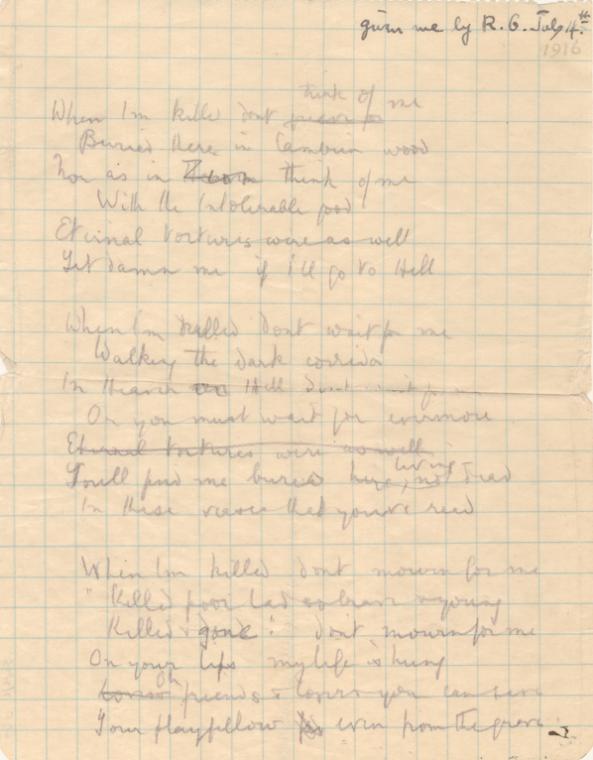 given me by R. G. July 4th
1916
think of me
When I'm killed dont
Buried there in Cambrin wood
Nor as in Zion think of me
With the Intolerable good
Eternal tortures were as well
Yet damn me if I'll go to Hell
When I'm killed dont wait for me
Walking the dark corridor
In Heaven or Hell dont wait for me
Or you must wait for evermore
Eternal tortures were as well
living-
You'll find me buried here, not dead
In these verses that you've read
When I'm killed dont mourn for me
" Killed poor lad so brave & young
Killed & gone! don't mourn for me
On your lips my life is hung
Oh friends & lovers you can save
Your playfellow even from the grave